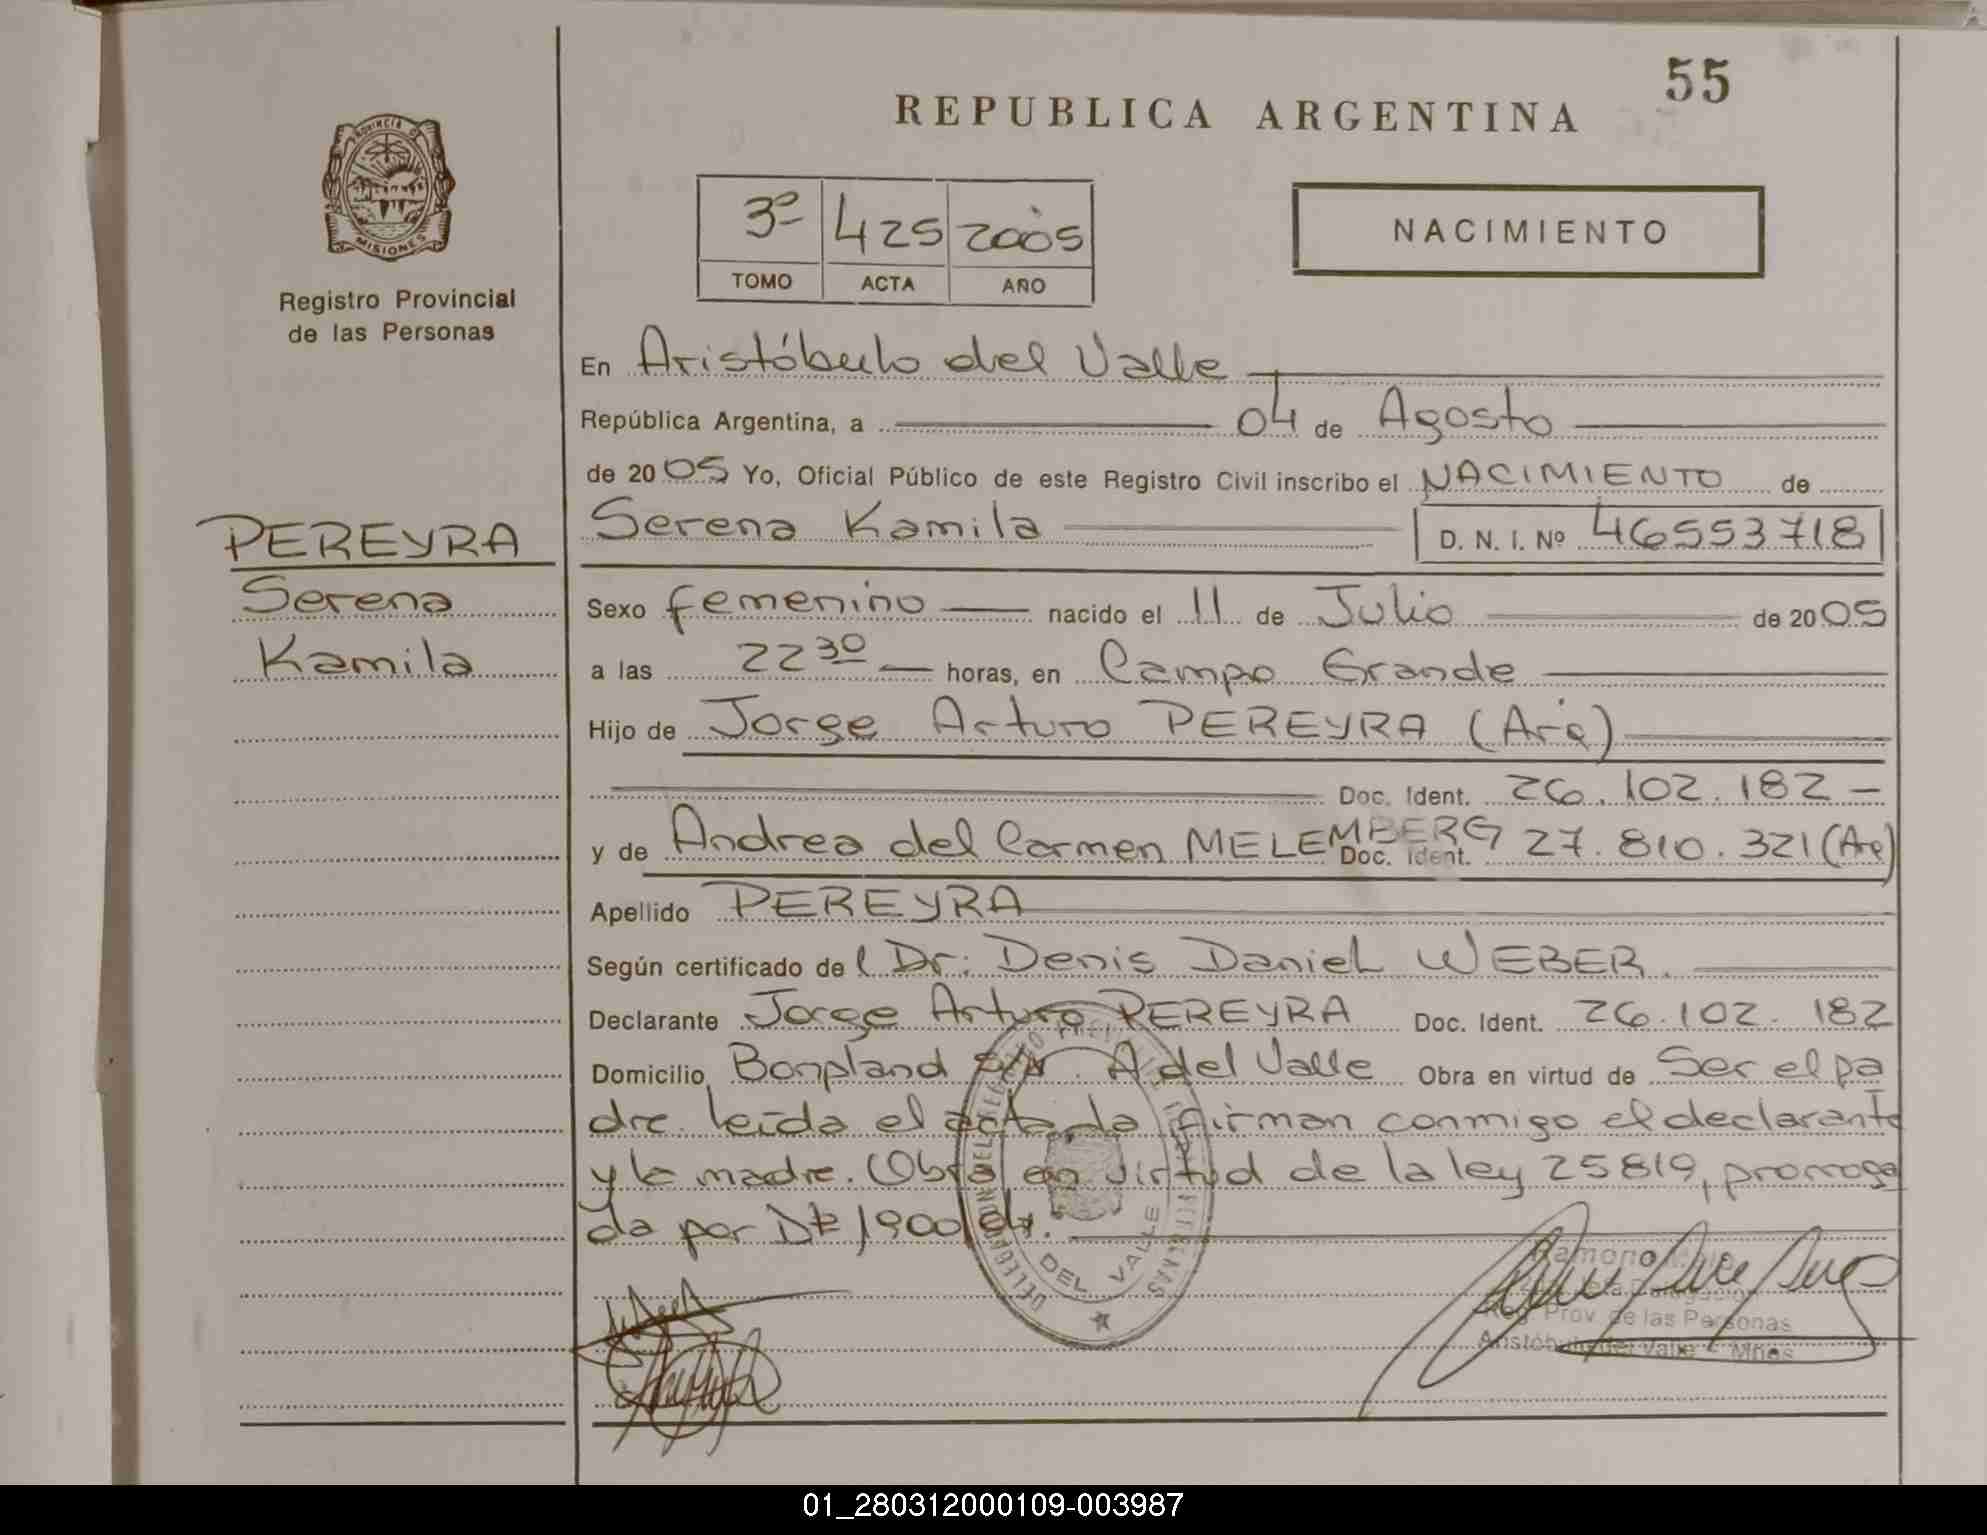 55
REPUBLICA ARGENTINA
PROVINCIA DE
MISIONES
Registro Provincial
de las Personas
3º 425 2005
TOMO ACTA AÑO
NACIMIENTO
En Aristóbulo del Valle
República Argentina, a 04 de Agosto
de 2005 Yo, Oficial Público de este Registro Civil inscribo el NACIMIENTO de
PEREYRA
Serena
Kamila
Serena Kamila D. N. I. Nº 46553718
Sexo femenino nacido el 11 de Julio de 2005
a las 22 30 horas, en Campo Grande
Hijo de Jorge Arturo PEREYRA (Arg)
Doc. Ident. 26.102.182
y de Andrea del Carmen MELEMBERG Doc. Ident. 27.810.321 (Arg)
Apellido PEREYRA
Según certificado del Dr. Denis Daniel WEBER.
Declarante Jorge Arturo PEREYRA Doc. Ident. 26.102.182
Domicilio Bonpland A del Valle Obra en virtud de Ser el pa
dre. leída el acta la firman conmigo el declarante
y la madre. Obra en virtud de la ley 25819, prorroga
da por Dto 1900/04.
DEL VALLE
Prov. de las Personas
Aristóbulo del Valle - Mnes
01_280312000109-003987